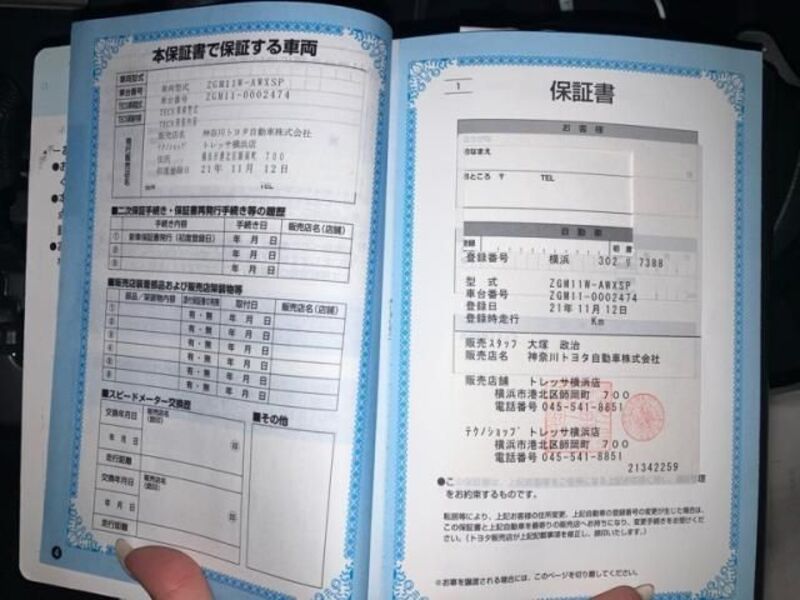 本保証書で保証する車両
車両型式
車台番号
車両型式 ZGM11W-AWXSP
車台番号 ZGM11-0002474
販売店名 神奈川トヨタ自動車株式会社
テクノショップ トレッサ横浜店
住所 横浜市港北区師岡町 700
初度登録日 21年 11月 12日
TEL
■二次保証手続き・保証書再発行手続き等の履歴
手続き内容 手続き日 販売店名(店舗)
① 新車保証書発行(初度登録日) 年 月 日
② 年 月 日
③ 年 月 日
■販売店装着部品および販売店架装物等
部品/架装物内容 取付日 販売店名(店舗)
① 有・無 年 月 日
② 有・無 年 月 日
③ 有・無 年 月 日
④ 有・無 年 月 日
⑤ 有・無 年 月 日
⑥ 有・無 年 月 日
■スピードメーター交換歴
交換年月日 販売店名
年 月 日 ㊞
走行距離
交換年月日 販売店名
年 月 日 ㊞
走行距離
■その他
4
1
保証書
お客様
おなまえ
おところ 〒 TEL
自動車
登録番号 横浜 302 す 7388
型式 ZGM11W-AWXSP
車台番号 ZGM11-0002474
登録日 21年 11月 12日
登録時走行 Km
販売スタッフ 大塚 政治
販売店名 神奈川トヨタ自動車株式会社
販売店舗 トレッサ横浜店
横浜市港北区師岡町 700
電話番号 045-541-8851
テクノショップ トレッサ横浜店
横浜市港北区師岡町 700
電話番号 045-541-8851
21342259
●こ
をお約束するものです。
転居等により、上記お客様の住所変更、上記自動車の登録番号の変更が生じた場合は、
この保証書と上記自動車を最寄りの販売店へお持ちになり、変更手続きをお受けくだ
さい。(トヨタ販売店が上記記載事項を修正し、捺印いたします。)
※お車を譲渡される場合には、このページを切り離してください。